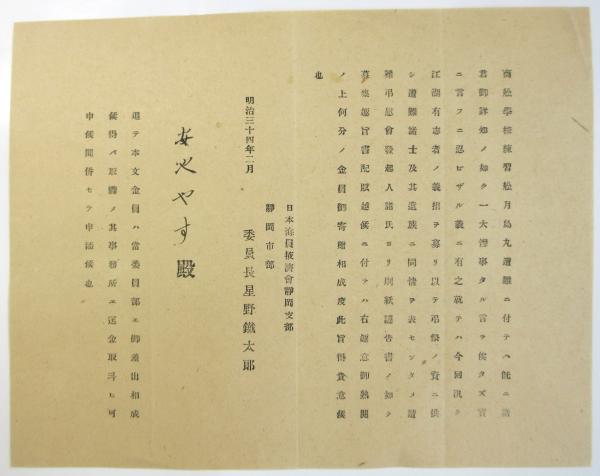 商船學校練習船月島丸遭難ニ付テハ既ニ諸
君御詳知ノ如ク一大慘事タル言ヲ俟タズ實
ニ言フニ忍ビザル義ニ有之就テハ今回汎ク
江湖有志者ノ義捐ヲ募リ以テ弔祭ノ資ニ供
シ遭難諸士及其遺族ニ同情ヲ表センタメ遭
難弔慰會發起人諸氏ヨリ別紙謹告書ノ如ク
募集趣旨書配賦越候ニ付テハ右趣意御熟閲
ノ上何分ノ金員御寄贈相成度此旨得貴意候
也
日本海員掖濟會靜岡支部
靜岡市部
委員長星野鐵太郎
明治三十四年二月
やす殿
追テ本文金員ハ當委員部エ御差出相成
候得バ取纒メ其事務所エ送金取斗ヒ可
申候間併セテ申添候也